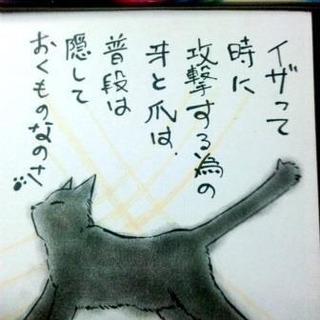 イザって
時に
攻撃する為の
牙と爪は、
普段は
隠して
おくものなのさ